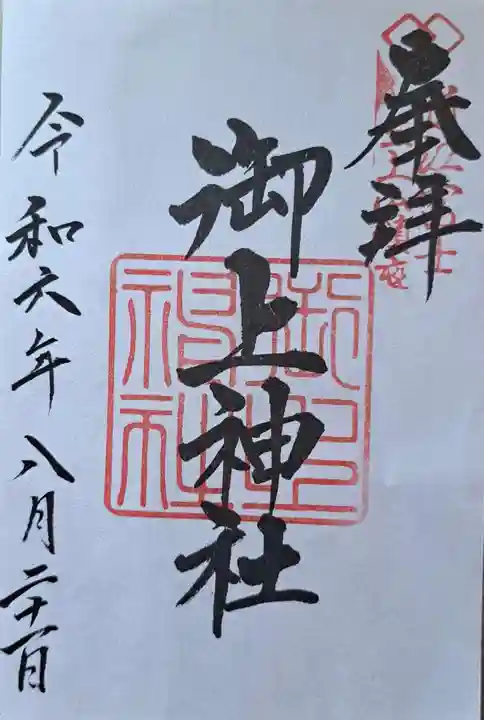 奉拝
御上神社
令和六年八月二十一日